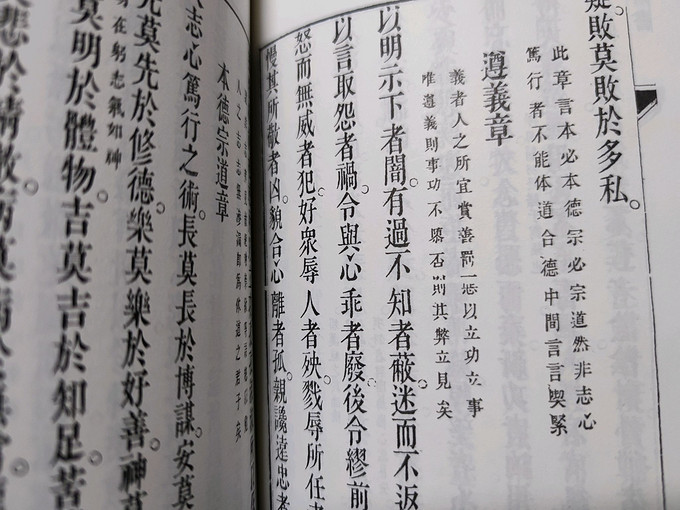 敗莫敗於多私。
此章言本必本德宗必宗道然非志心
篤行者不能体道合德中間言言喫緊
遵義章
義者人之所宜賞善罰惡以立功立事
唯遵義則事功不墜否則其弊立見矣
以明示下者闇。有過不知者蔽。迷而不返
以言取怨者禍。令與心乖者廢。後令繆前
怒而無威者犯。好衆辱人者殃。戮辱所任者
慢其所敬者凶。貌合心離者孤。親讒遠忠者
之君子矣
本德宗道章
夫志心篤行之術。長莫長於博謀。安莫
先莫先於修德。樂莫樂於好善。神莫
在躬志氣如神
莫明於體物。吉莫吉於知足。苦
莫悲於精散。病莫病於